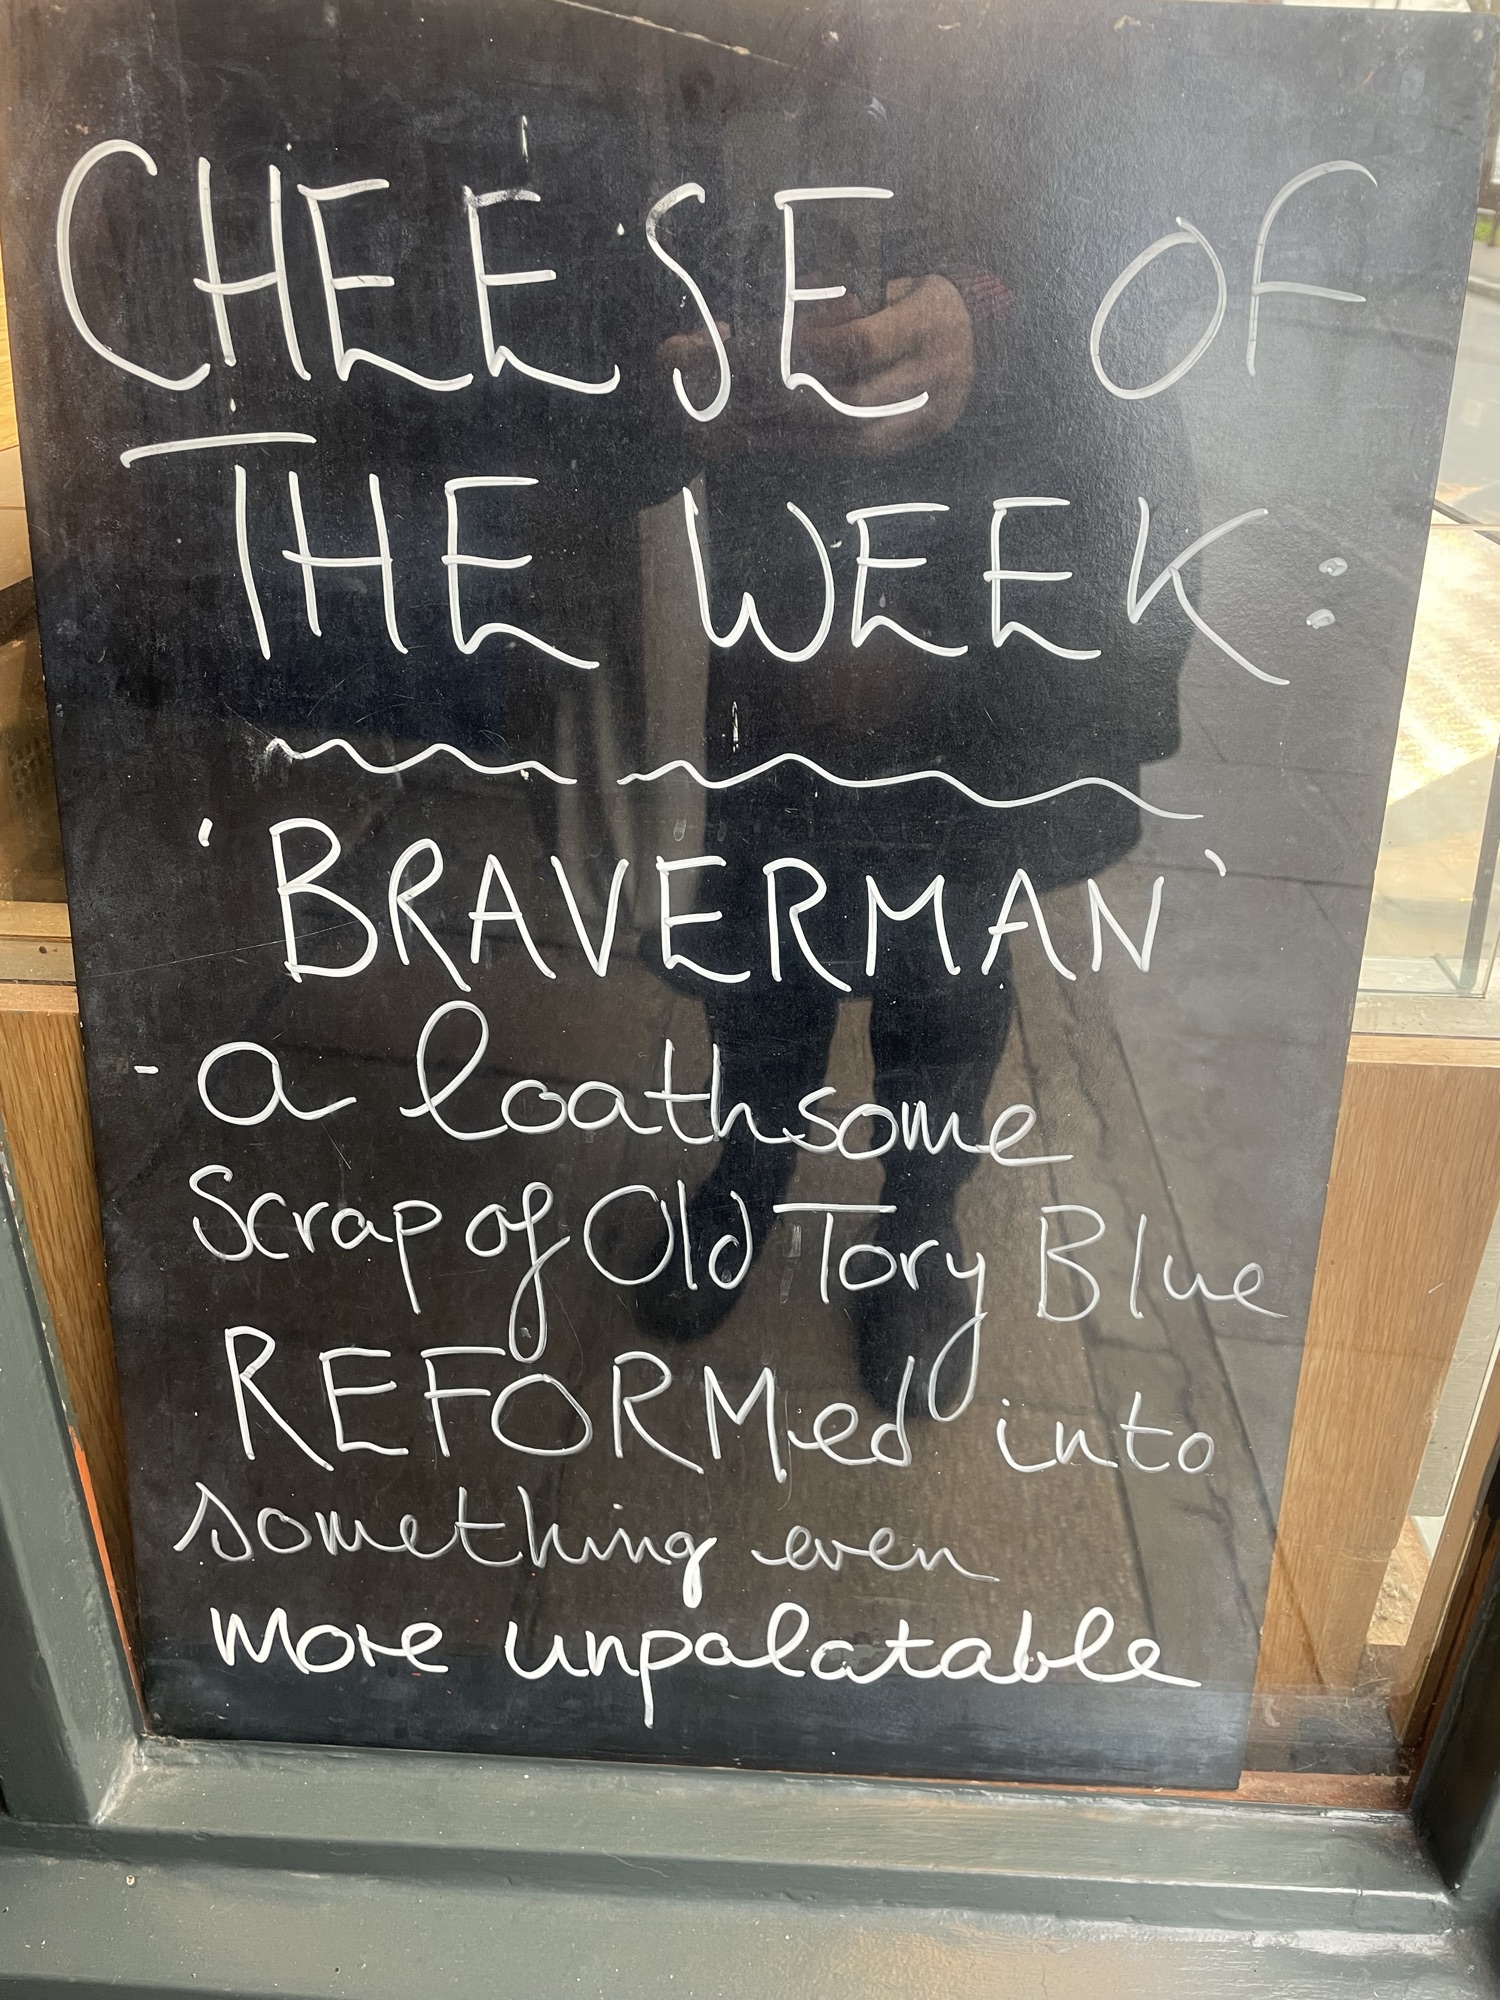 CHEESE OF
THE WEEK:
'BRAVERMAN'
- a loathsome
Scrap of Old Tory Blue
REFORMed into
something even
more unpalatable